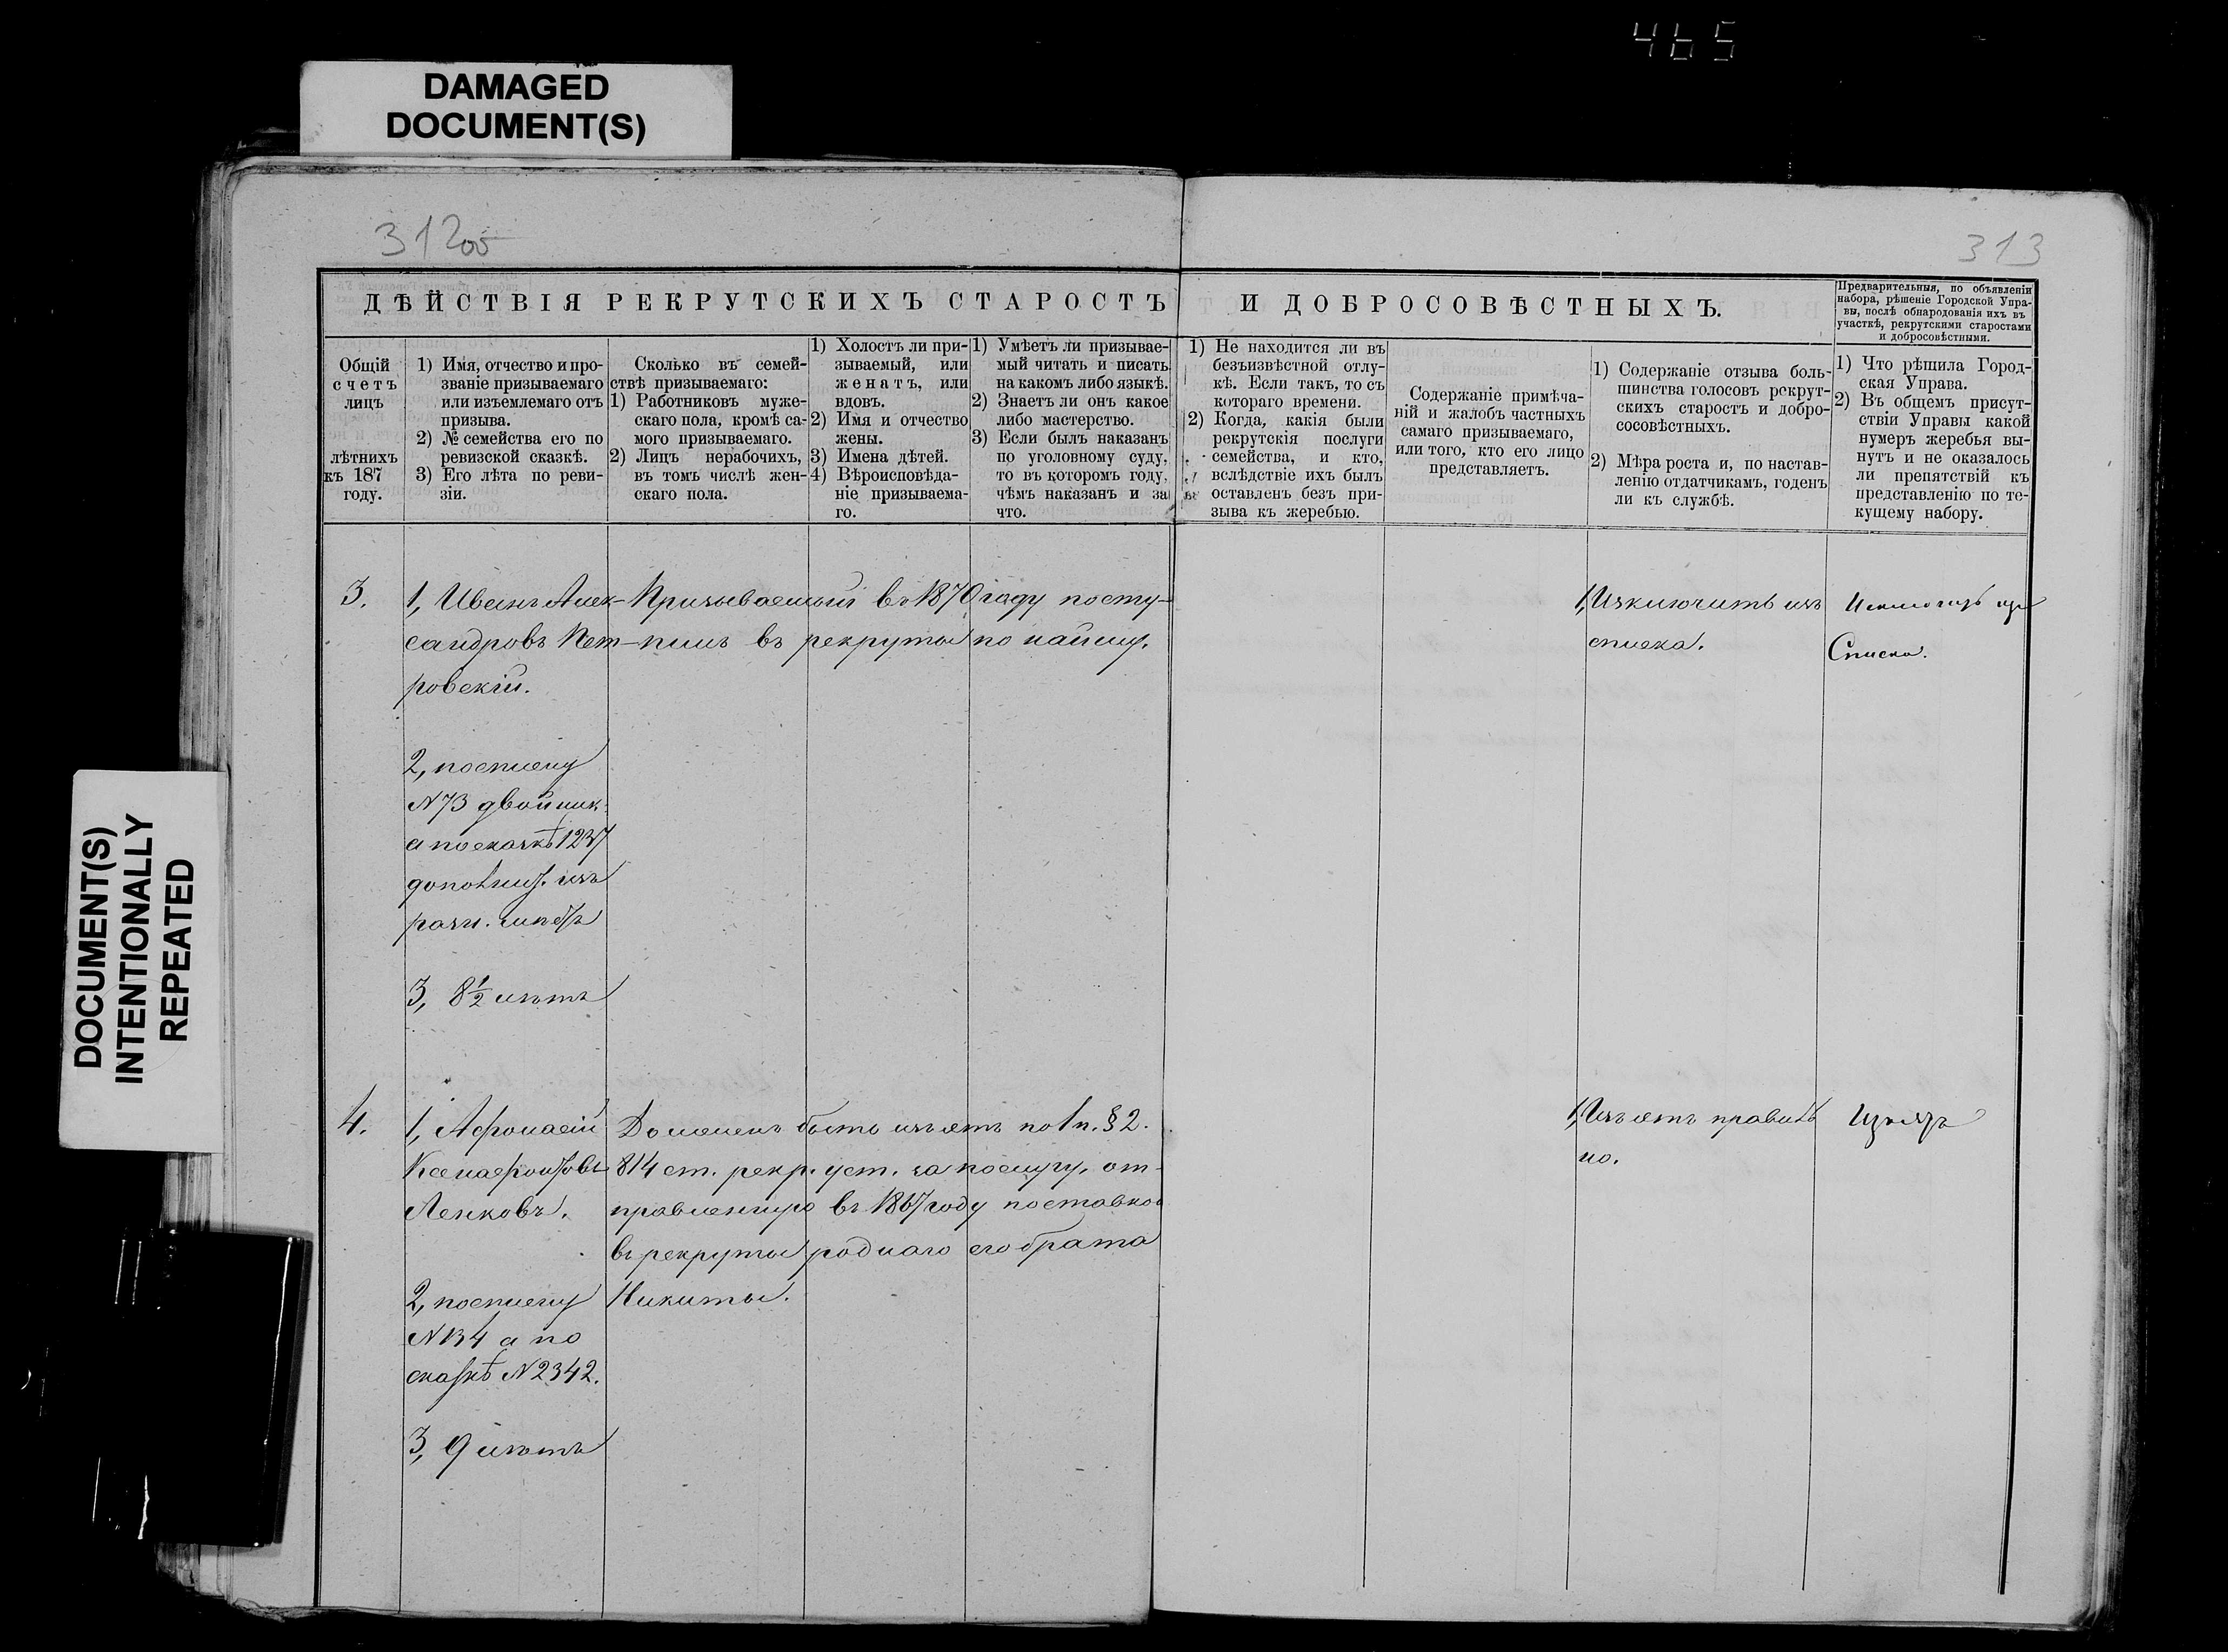 465
DAMAGED
DOCUMENT(S)
DOCUMENT(S)
INTENTIONALLY
REPEATED
312об
313
ДѢЙСТВІЯ РЕКРУТСКИХЪ СТАРОСТЪ И ДОБРОСОВѢСТНЫХЪ.
Предварительныя, по объявленіи
набора, рѣшеніе Городской Упра-
вы, послѣ обнародованія ихъ въ
участкѣ, рекрутскими старостами
и добросовѣстными.
Общій
счетъ
лицъ
лѣтнихъ
къ 187
году.
1) Имя, отчество и про-
званіе призываемаго
или изъемлемаго отъ
призыва.
2) № семейства его по
ревизской сказкѣ.
3) Его лѣта по реви-
зіи.
Сколько въ семей-
ствѣ призываемаго:
1) Работниковъ муже-
скаго пола, кромѣ са-
мого призываемаго.
2) Лицъ нерабочихъ,
въ томъ числѣ жен-
скаго пола.
1) Холостъ ли при-
зываемый, или
женатъ, или
вдовъ.
2) Имя и отчество
жены.
3) Имена дѣтей.
4) Вѣроисповѣда-
ніе призываема-
го.
1) Умѣетъ ли призывае-
мый читать и писать
на какомъ либо языкѣ.
2) Знаетъ ли онъ какое
либо мастерство.
3) Если былъ наказанъ
по уголовному суду,
то въ которомъ году,
чѣмъ наказанъ и за
что.
1) Не находится ли въ
безъизвѣстной отлу-
кѣ. Если такъ, то съ
котораго времени.
2) Когда, какія были
рекрутскія послуги
семейства, и кто,
вслѣдствіе ихъ былъ
оставленъ безъ при-
зыва къ жеребью.
Содержаніе примѣча-
ній и жалобъ частныхъ
самаго призываемаго,
или того, кто его лицо
представляетъ.
1) Содержаніе отзыва боль-
шинства голосовъ рекрут-
скихъ старостъ и добро-
сосовѣстныхъ.
2) Мѣра роста и, по настав-
ленію отдатчикамъ, годенъ
ли къ службѣ.
1) Что рѣшила Город-
ская Управа.
2) Въ общемъ присут-
ствіи Управы какой
нумеръ жеребья вы-
нутъ и не оказалось
ли препятствій къ
представленію по те-
кущему набору.
3.
1, Иванъ Алек-
сандровъ Пет-
ровскій.
2, по списку
N 73 двойник.
а по сказкѣ 1237
дополнит. изъ
3, 8½ лѣтъ
Призываемый въ 1870 году посту-
пилъ въ рекруты по найму.
1, Изключить изъ
списка.
Исключить изъ
Списка.
4.
1, Афонасій
Ксенафонтовъ
Ленковъ.
2, по списку
N 134 а по
сказкѣ N 2342.
3, 9 лѣтъ
Долженъ быть изъятъ по 1 п. § 2.
814 ст. рекр. уст. за послугу, от-
правленную въ 1867 году поставкой
въ рекруты роднаго его брата
Никиты.
1, Изъятъ правиль
но.
Изъятъ